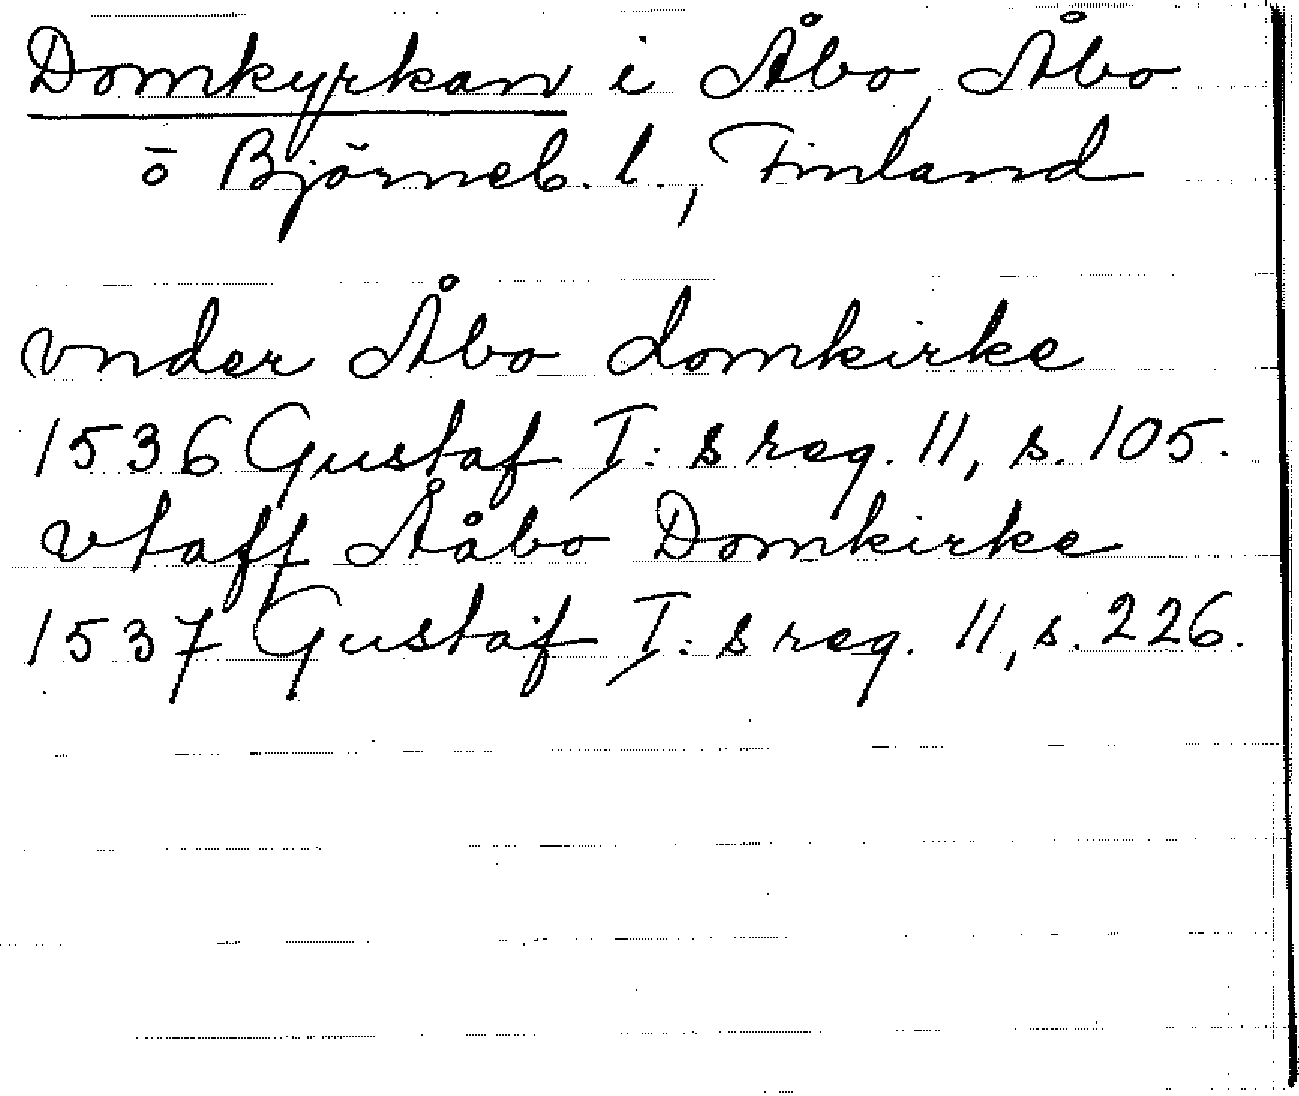 Domkyrkan i Åbo, Åbo
ō Björneb. l., Finland
vnder Åbo domkirke
1536 Gustaf I:s reg. 11, s. 105.
vtaff Ååbo Domkirke
1537 Gustaf I:s reg. 11, s. 226.